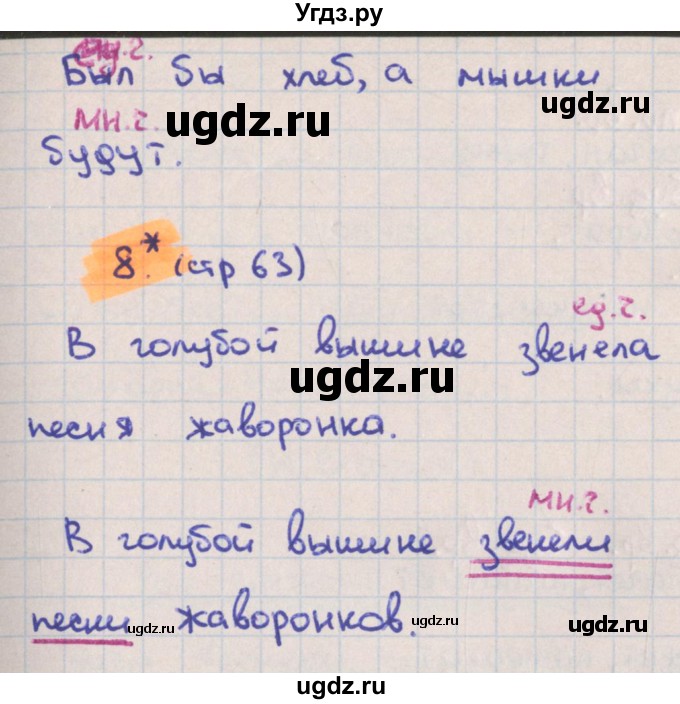 Угдз.ру
ед.ч.
Был бы хлеб, а мышки
мн.ч.
ugdz.ru
будут.
8.* (стр 63)
ед.ч.
В голубой вышине звенела
ugdz.ru
песня жаворонка.
мн.ч.
В голубой вышине звенели
песни ugdz.ru жаворонков. ugdz.ru ugdz.ru
ugdz.ru